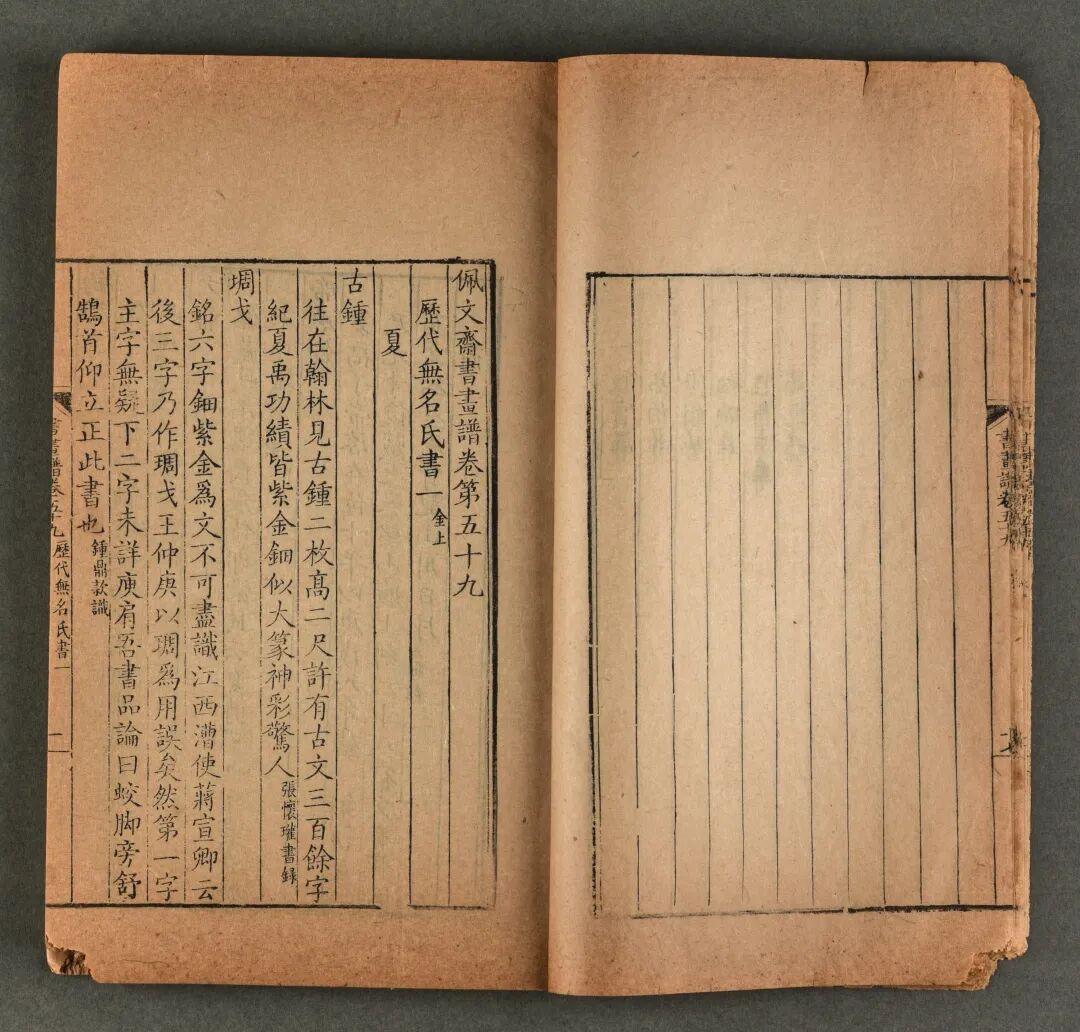 佩文齋書畫譜卷第五十九
歷代無名氏書一 金上
夏
古鍾
往在翰林見古鍾二枚髙二尺許有古文三百餘字
紀夏禹功績皆紫金鈿似大篆神彩驚人 張懷瓘書録
琱戈
銘六字鈿紫金爲文不可盡識江西漕使蔣宣卿云
後三字乃作琱戈王仲庚以琱爲用誤矣然第一字
主字無疑下二字未詳庾肩吾書品論曰蛟脚旁舒
鵠首仰立正此書也 鍾鼎款識
書畫譜卷五十九 歷代無名氏書一
書畫譜卷五十九